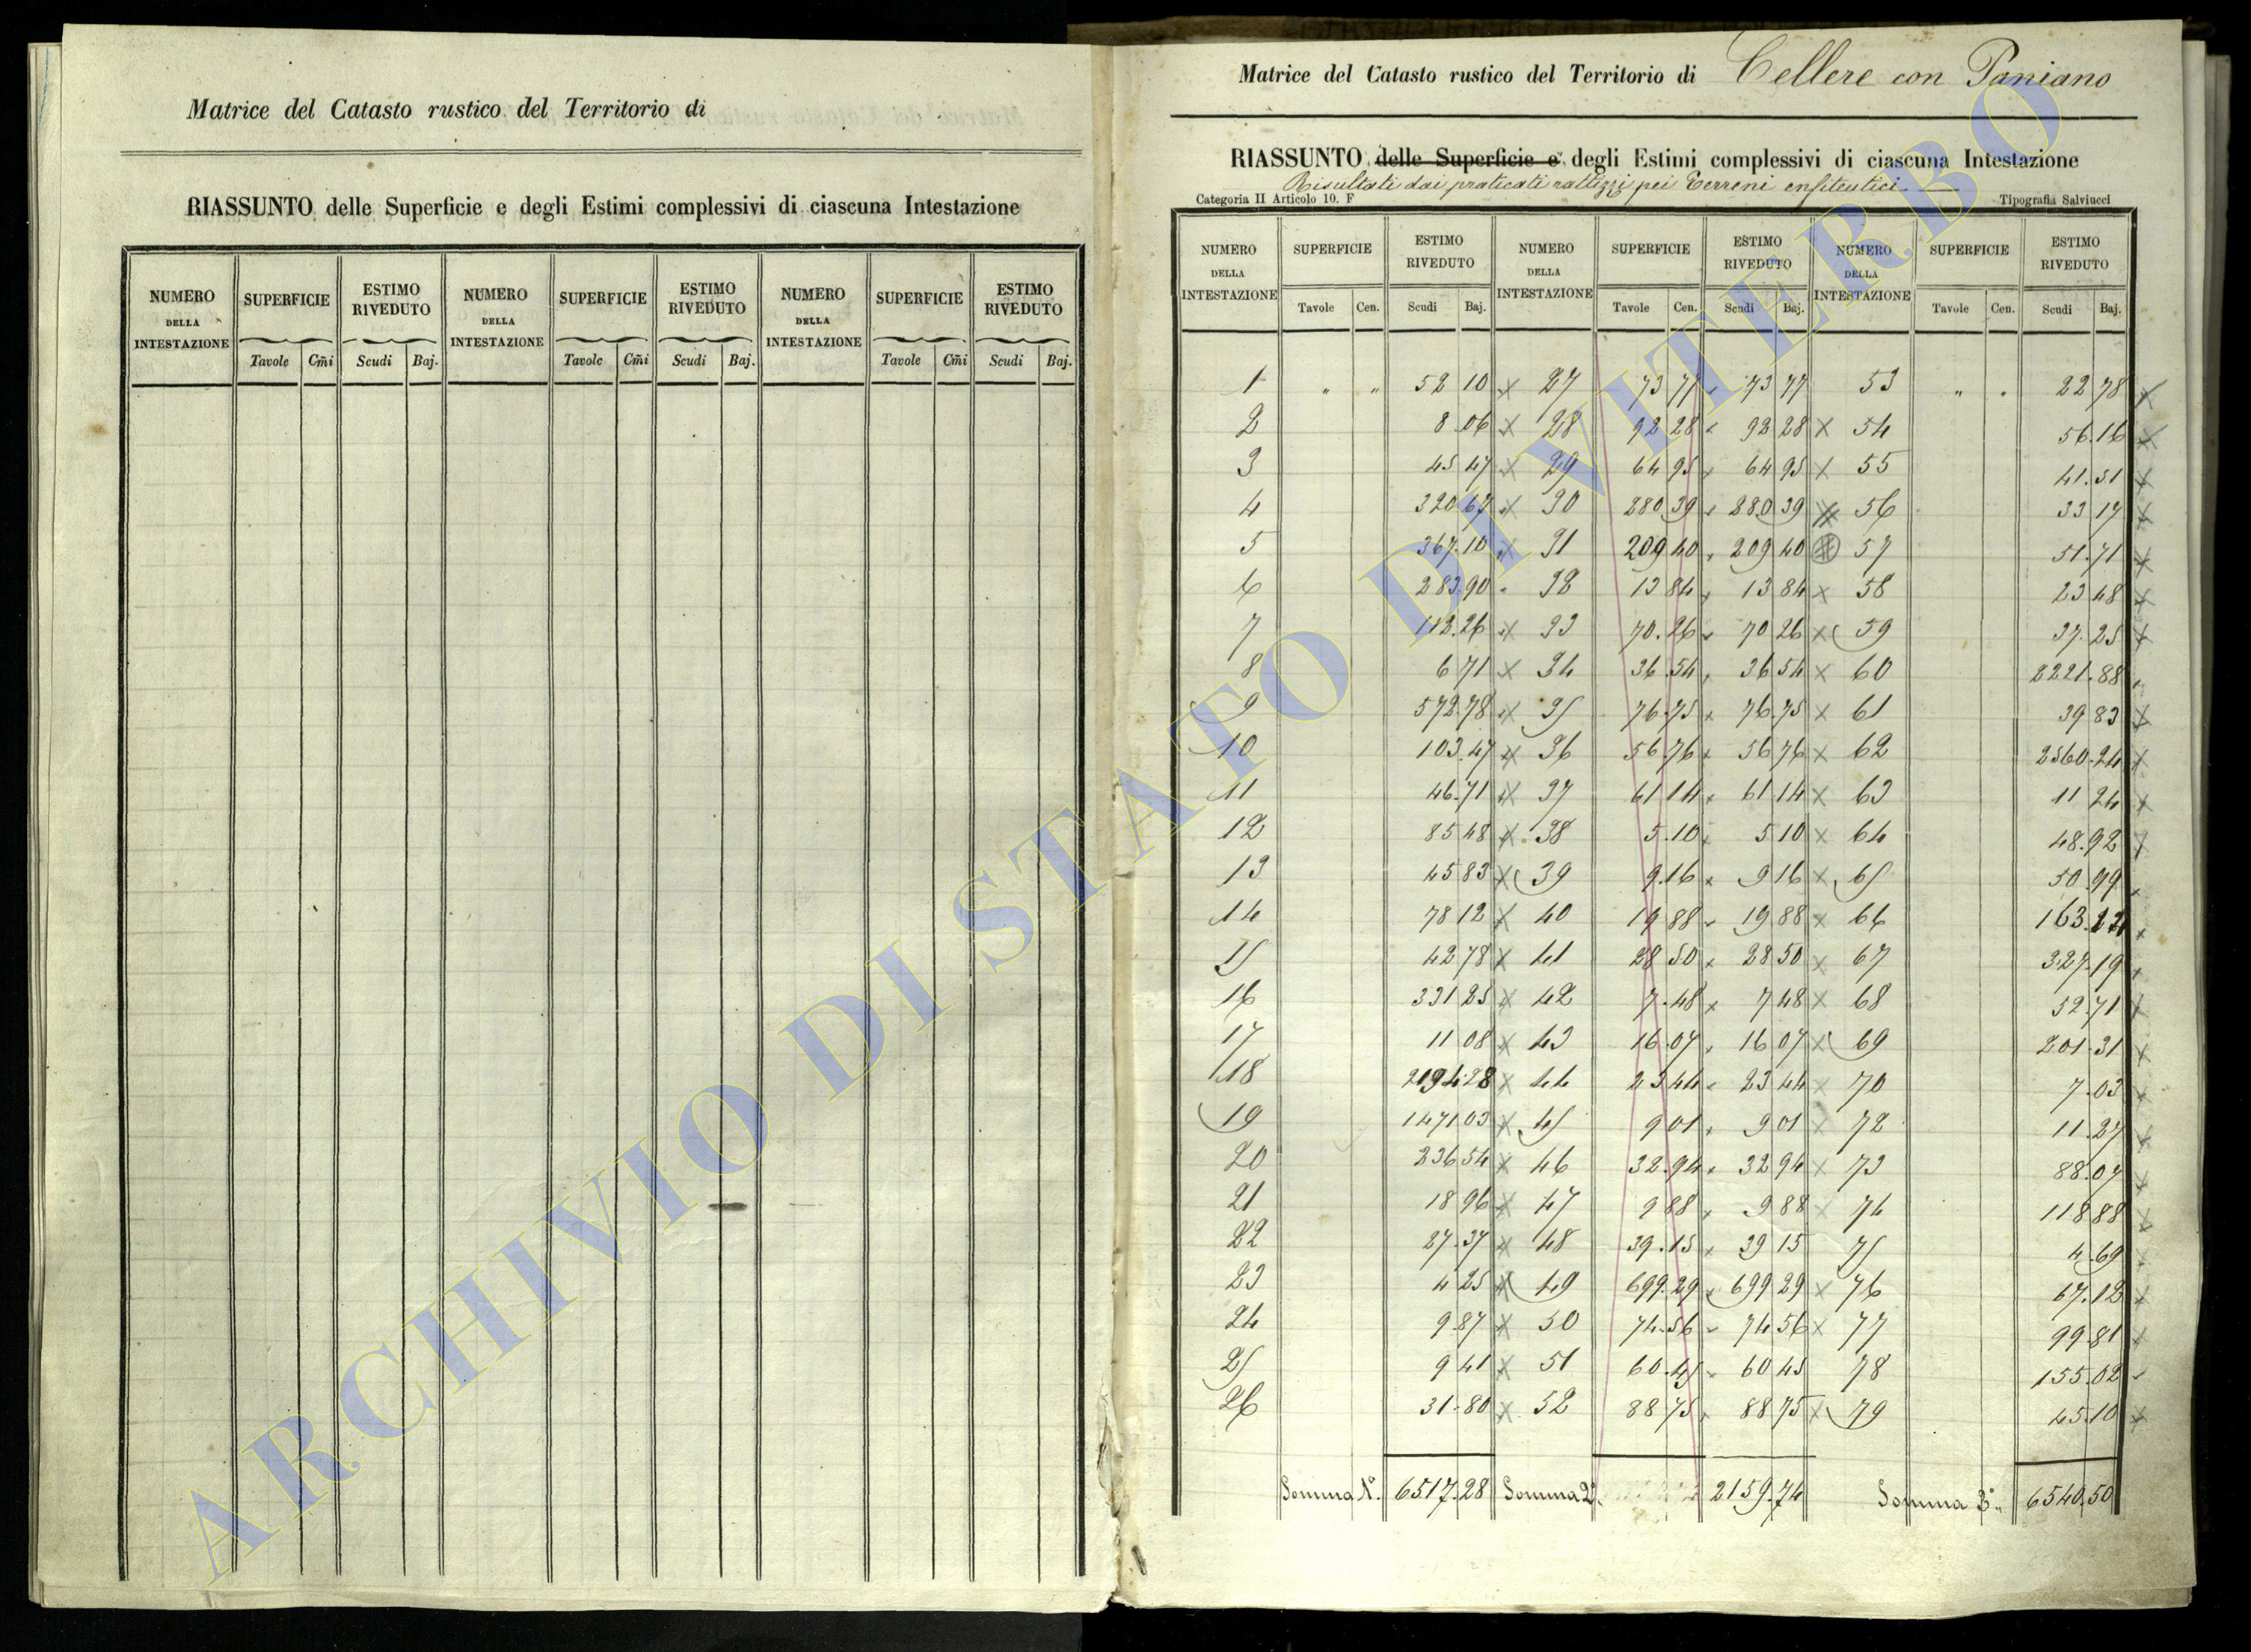 Matrice del Catasto rustico del Territorio di
RIASSUNTO delle Superficie e degli Estimi complessivi di ciascuna Intestazione
NUMERO DELLA INTESTAZIONE SUPERFICIE ESTIMO RIVEDUTO NUMERO DELLA INTESTAZIONE SUPERFICIE ESTIMO RIVEDUTO NUMERO DELLA INTESTAZIONE SUPERFICIE ESTIMO RIVEDUTO
Tavole Cm̄i Scudi Baj. Tavole Cm̄i Scudi Baj. Tavole Cm̄i Scudi Baj.
Matrice del Catasto rustico del Territorio di Cellere con Paniano
RIASSUNTO delle Superficie e degli Estimi complessivi di ciascuna Intestazione
Risultati dai praticati rattizzi pei Terreni enfiteutici
Categoria II Articolo 10. F Tipografia Salviucci
NUMERO DELLA INTESTAZIONE SUPERFICIE ESTIMO RIVEDUTO NUMERO DELLA INTESTAZIONE SUPERFICIE ESTIMO RIVEDUTO NUMERO DELLA INTESTAZIONE SUPERFICIE ESTIMO RIVEDUTO
Tavole Cen. Scudi Baj. Tavole Cen. Scudi Baj. Tavole Cen. Scudi Baj.
1 " " 52 10 27 73 77 73 77 53 " " 22 78
2 8 06 28 92 28 92 28 54 56.16
3 45 47 29 64 95 64 95 55 41.51
4 320 67 30 280 39 280 39 56 33 17
5 367.10 31 209 40 209 40 57 51.71
6 283.90 32 13 84 13 84 58 23 48
7 112.26 33 70.26 70 26 59 37.25
8 6 71 34 36.54 36 54 60 2221.88
9 572.78 35 76.75 76.75 61 39 83
10 103.47 36 56 76 56 76 62 2560.24
11 46.71 37 61 14 61 14 63 11 24
12 85 48 38 5.10 5 10 64 48.92
13 45 83 39 9.16 9 16 65 50.99
14 78 12 40 19 88 19 88 66 163.
15 42 78 41 28 50 28 50 67 327.19
16 331 25 42 7.48 7 48 68 52.71
17 11 08 43 16 07 16 07 69 201.31
18 2194.28 44 23 44 23 44 70 7.03
19 1471 03 45 9 01 9 01 72 11.27
20 236 54 46 32.94 32 94 73 88.07
21 18 96 47 9 88 9 88 74 118 88
22 27.37 48 39.15 39 15 75 4.69
23 4 25 49 699.29 699 29 76 67.12
24 9 87 50 74.56 74 56 77 99.81
25 9 41 51 60.45 60 45 78 155.02
26 31.80 52 88 75 88 75 79 45.10
Somma 1ª. 6517.28 Somma 2ª. 2159.74 Somma 3ª. 6540.50
ARCHIVIO DI STATO DI VITERBO